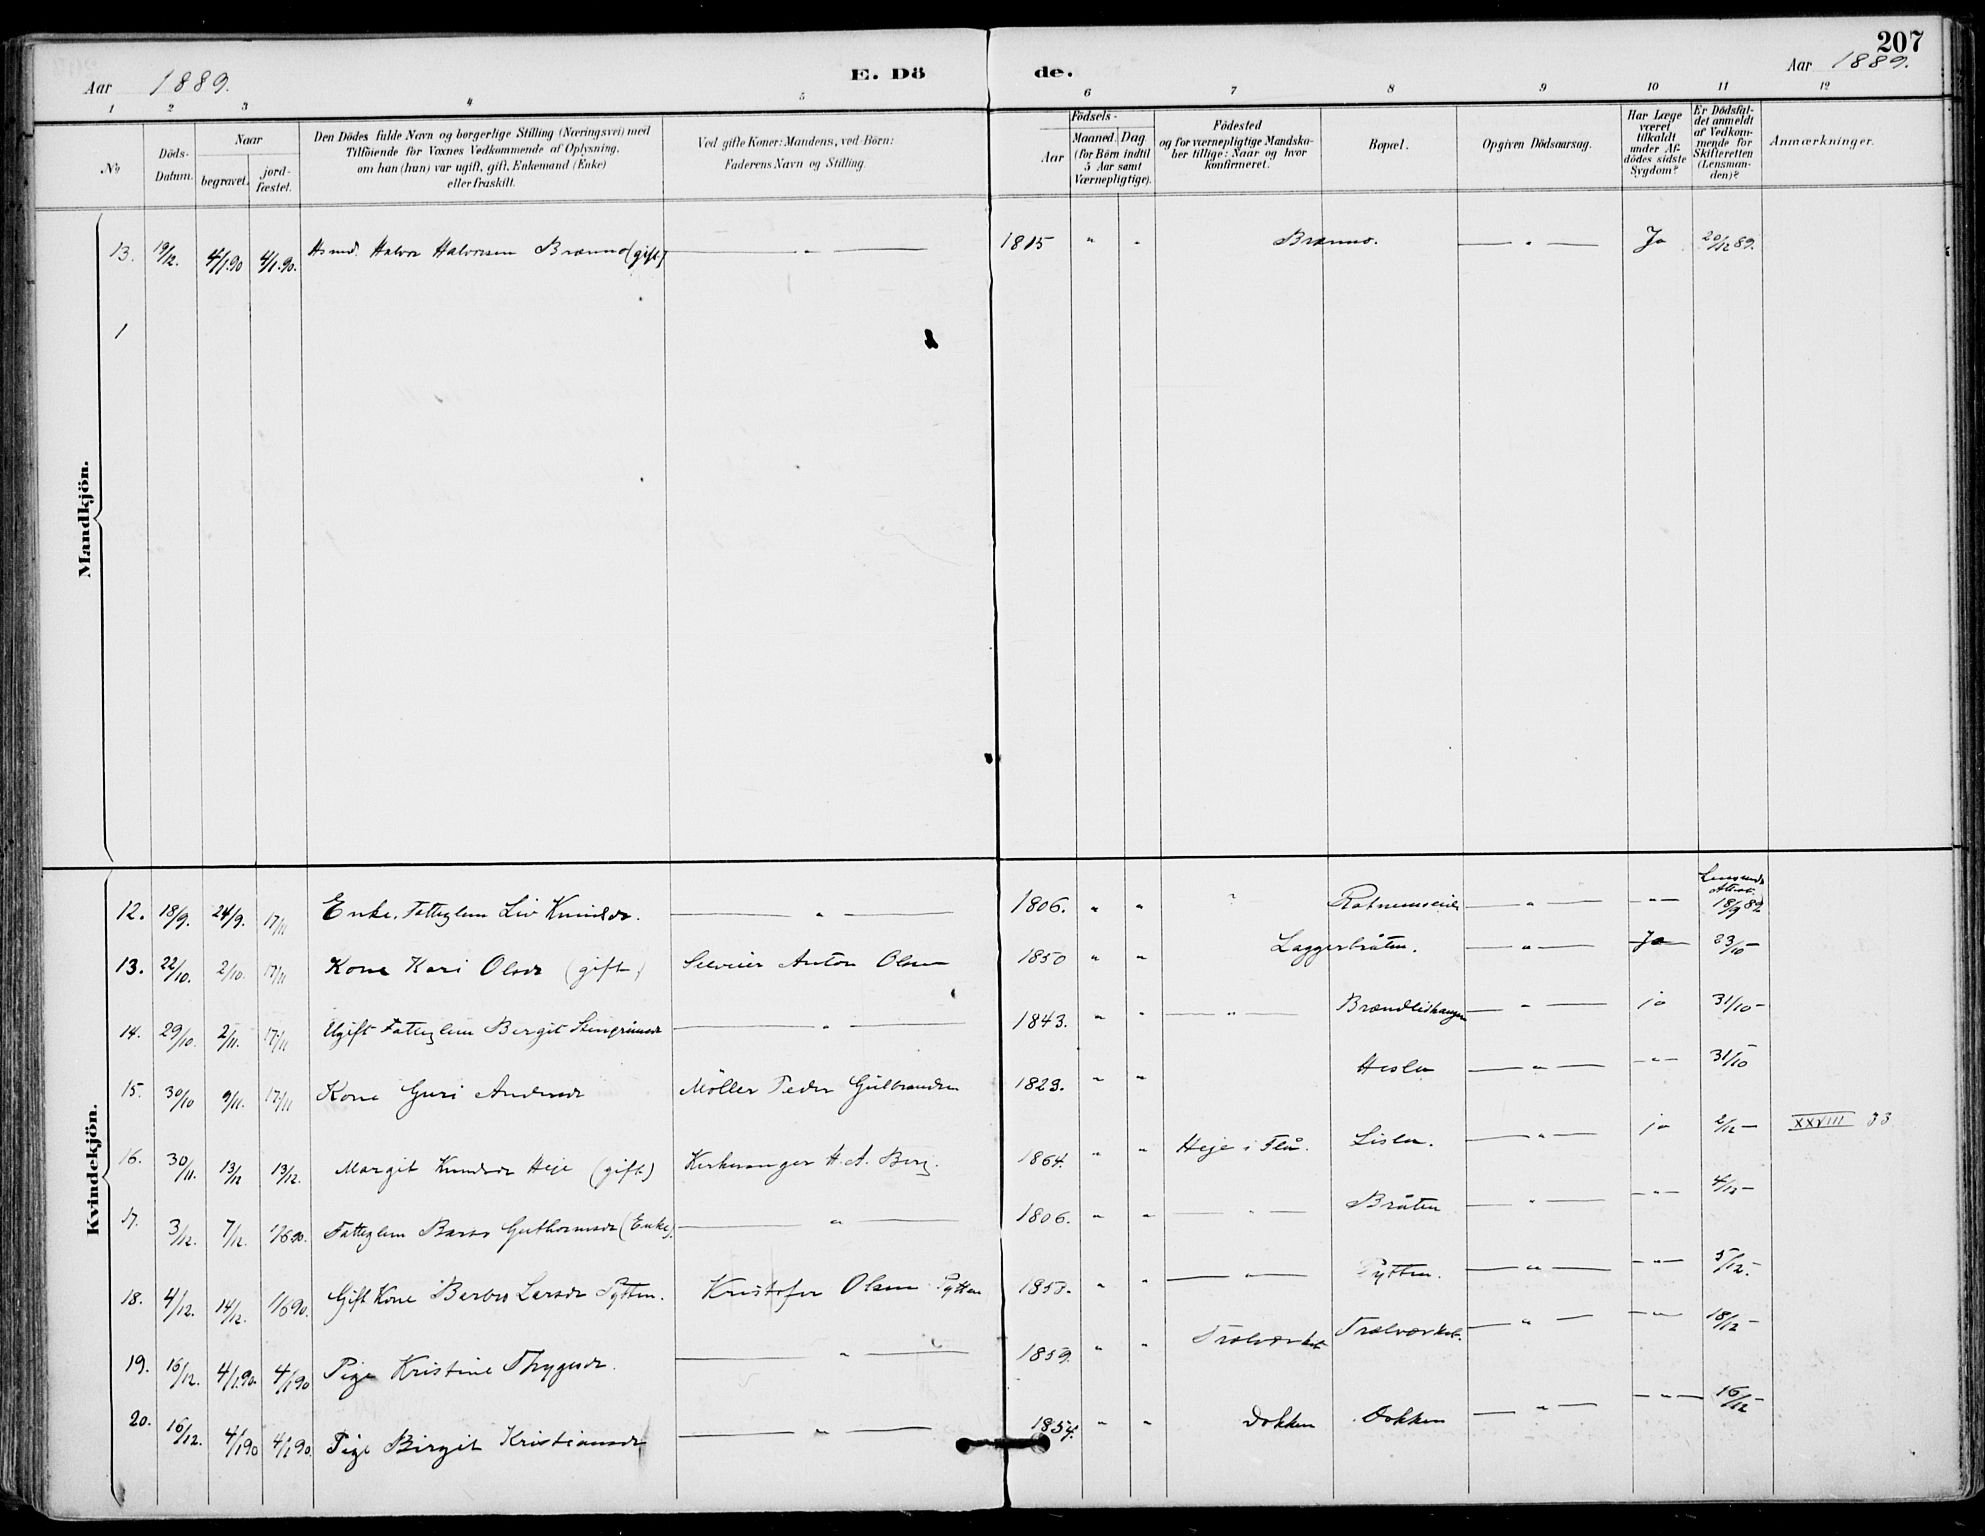 207
Aar 1889.
E. Dö
de.
Aar 1889.
1 2 3 4 5 6 7 8 9 10 11 12
No
Döds-
Datum.
Naar
begravet.
jord-
fæstet.
Den Dödes fulde Navn og borgerlige Stilling (Næringsvei) med
Tilföiende for Voxnes Vedkommende af Oplysning,
om han (hun) var ugift, gift, Enkemand (Enke)
eller fraskilt.
Ved gifte Koner: Mandens, ved Börn:
Faderens Navn og Stilling.
Födsels-
Aar
Maaned. Dag
(for Börn indtil
5 Aar samt
Værnepligtige).
Födested
og for værnepligtige Mandska-
ber tillige: Naar og hvor
konfirmeret.
Bopæl.
Opgiven Dödsaarsag.
Har Læge
været
tilkaldt
under Af-
dödes sidste
Sygdom?
Er Dödsfal-
det anmeldt
af Vedkom-
mende for
Skifteretten
(Lensman-
den)?
Anmærkninger.
Mandkjön.
13. 19/12. 4/1.90 4/1.90. Halvor Halvorsen Bræmmo (gift) — " — 1815 " " Bræmmo. — " — Ja 20/12 89.
1
Kvindekjön.
12. 18/9. 24/9. 17/11 Enke, Fattiglem Liv Knudsdr. — " — 1806. " " " — " — — " — 18/9 89
13. 22/10. 2/10. 17/11 Kone Kari Olsdr (gift) Anton Olsen 1850 " " Laggerbråten. — " — Ja 23/10 —
14. 29/10. 2/11. 17/11 Ugift Fattiglem Bergit Steingrimsdr — " — 1843. " " — " — Brændlidhaugen — " — ja 31/10 —
15. 30/10 9/11. 17/11 Kone Guri Andersdr Möller Peder Gulbrandsen 1829. " " Heslen — " — — " — 31/10 —
16. 30/11. 13/12 13/12. Margit Knudsdr Heje (gift) Kirkesanger A. A. Berg. 1864. " " Heje i Flå. Lislen. — " — ja 2/12 — XXVIII 33
17. 3/12. 7/12. 1/6 90. Fattiglem Barbro Guthormsdr (Enke). — " — 1806. " " — " — Bråten — " — — " — 4/12 —
18. 4/12. 14/12. 1/6 90. Gift Kone Barbro Larsdr Pytten. Kristofer Olsen Pytten 1853. " " — " — Pytten. — " — — " — 5/12 —
19. 16/12. 4/1.90 4/1 90 Pige Kristine Thygesdr. — " — 1859. " " Trolværket Trolværket. — " — — " — 18/12 —
20. 16/12. 4/1 90 4/1 90. Pige Birgit Kristiansdr — " — 1854. " " Dokken Dokken — " — — " — 16/12 —